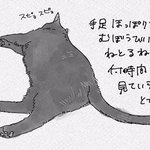 スピョ スピョ
手足ほっぽり
むぼうびに
ねとるね
何時間
見てい
とて